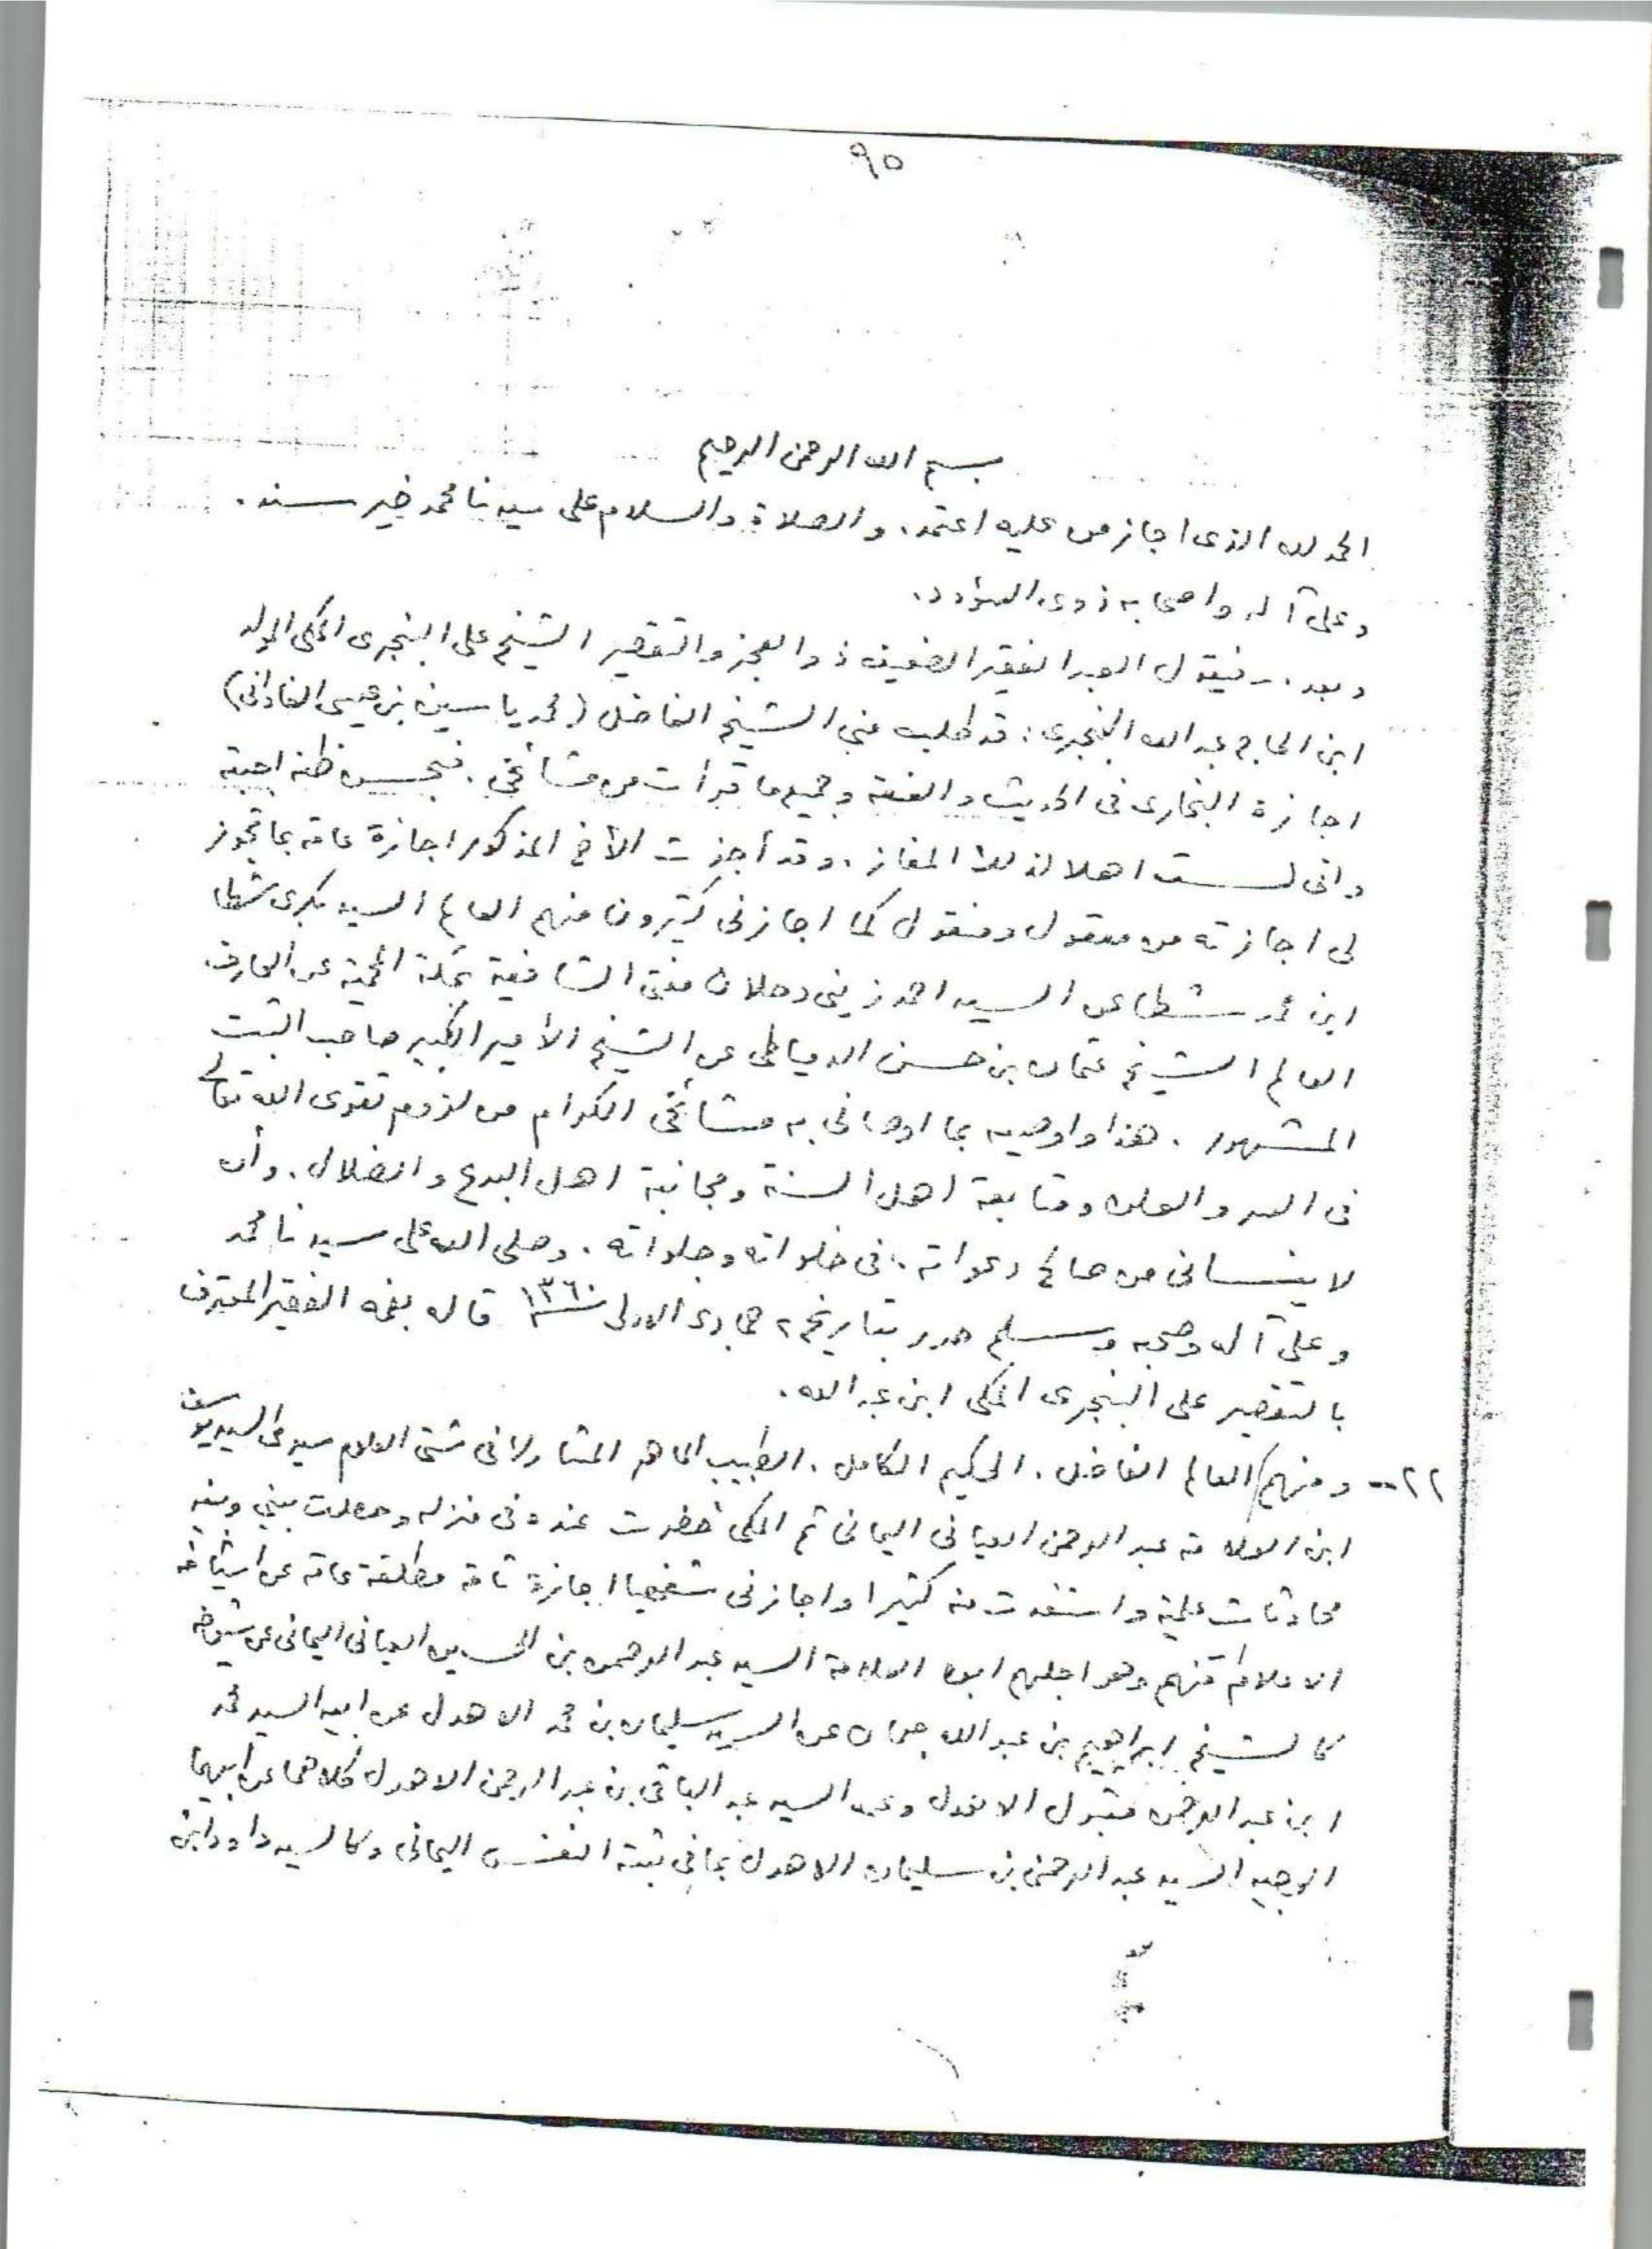 ٩٥
بسم الله الرحمن الرحيم
الحمد لله الذى اجاز من عليه اعتمد، والصلاة والسلام على سيدنا محمد خير سند.
وعلى آله واصحابه ذوى السؤدد.
وبعد . فيقول العبد الفقير الضعيف ذو العجز والتقصير الشيخ على البنجرى المكى المولد
ابن الحاج عبد الله البنجرى: قد طلب منى الشيخ الفاضل (محمد ياسين بن عيسى الفادانى)
اجازة البخارى فى الحديث والفقه وجميع ما قرأت من مشائخى. فبحسن ظنه اجبته
وانى لست اهلا لذلك المفاز. وقد أجزت الأخ المذكور اجازة عامة بما تجوز
لى اجازته من معقول ومنقول كما اجازنى كثيرون منهم العالم السيد بكرى شطا
ابن محمد شطا عن السيد احمد زينى دحلان مفتى الشافعية بمكة المحمية عن العارف
العالم الشيخ عثمان بن حسن الدمياطى عن الشيخ الأمير الكبير صاحب الثبت
المشهور . هذا واوصيه بما اوصانى به مشائخى الكرام من لزوم تقوى الله تعالى
فى السر والعلن ومتابعة اهل السنة ومجانبة اهل البدع والضلال. وأن
لا ينسانى من صالح دعواته. فى خلواته وجلواته . وصلى الله على سيدنا محمد
وعلى آله وصحبه وسلم حرر بتاريخ ٢ جمادى الاولى ١٣٦٠ قاله بفمه الفقير المعترف
بالتقصير على البنجرى المكى ابن عبد الله .
٢٢ -- ومنهم العالم الفاضل . الحكيم الكامل . الطبيب الماهر المشارك فى شتى العلوم سيدى السيد يوسف
ابن العلامة عبد الرحمن اليمانى ثم المكى حضرت عنده فى منزله وحصلت بينى وبينه
محادثات علمية واستفدت منه كثيرا واجازنى شفهيا اجازة تامة مطلقة عامة عن اشياخه
الاعلام منهم وهو اجلهم ابوه العلامة السيد عبد الرحمن بن الحسين اليمانى عن شيوخه
كالشيخ ابراهيم بن عبد الله جمان عن السيد سليمان بن محمد الاهدل عن ابيه السيد محمد
ابن عبد الرحمن مقبول الاهدل وعن السيد عبد الباقى بن عبد الرحمن الاهدل كلاهما عن ابيهما
الوجيه السيد عبد الرحمن بن سليمان الاهدل بما فى ثبته النفس اليمانى وكالسيد داود ابن